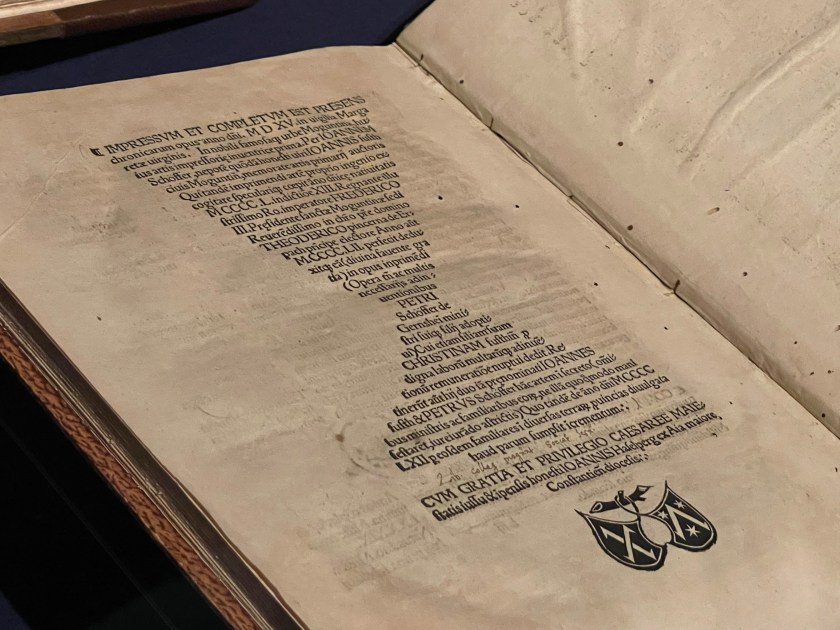 IMPRESSVM ET COMPLETVM EST PRESENS
chronicarum opus anno dñi. M D XV. in vigilia Marga
retæ uirginis. In nobili famosaq; urbe Moguntina, hu⁹
ius artis impressoriæ inuentrice prima. Per IOANNEM
Schöffer, nepotē quōdā honesti uiri IOANNIS fusth
ciuis Moguntiñ, memorate artis primarij auctoris
Qui tandē imprimendi artē proprio ingenio ex
cogitare specularíq; coepit anno dñice natiuitatis
M. CCCC. L. indictiōe XIII. Regnante illu
strissimo Ro. imperatore FREDERICO
III. Præsidente sanctæ Moguntinæ sedi
Reuerēdissimo in chřo pře domino
THEODERICO pincerna de Er
pach prīcipe electore Anno aūt
M. CCCC. LII. perfecit dedu
xitq; eā (diuina fauente gra
tia) in opus inprimēdi
(Opera tñ ac multis
necessarijs adin
uentionibus
PETRI
Schöffer de
Gernsheim minis
stri suiq; filij adopti
ui) Cui etiam filiam suam
CHRISTINAM fusthin̄ ꝓ
digna laborū multarūq; adinuē
tionū remuneratiōe nuptui dedit. Re
tinerūt aūt hij duo iā prænominati IOANNES
fusth & PETRVS Schöffer hāc artem ī secreto (omī
bus ministris ac familiaribus eorū, ne illā quoq; mō mani
festarēt, iureiurādo astrictis) Quo tandē de año dñi M. CCCC
LXII. p eosdem familiares ī diuersas terrarū puincias diuulgata
haud parum sumpsit icrementum:.
CVM GRATIA ET PRIVILEGIO CAESAREE MAIE
statis iussu & īpensis honesti IOANNIS Haselperg ex Aia maiore
Constantieñ diocesis:.